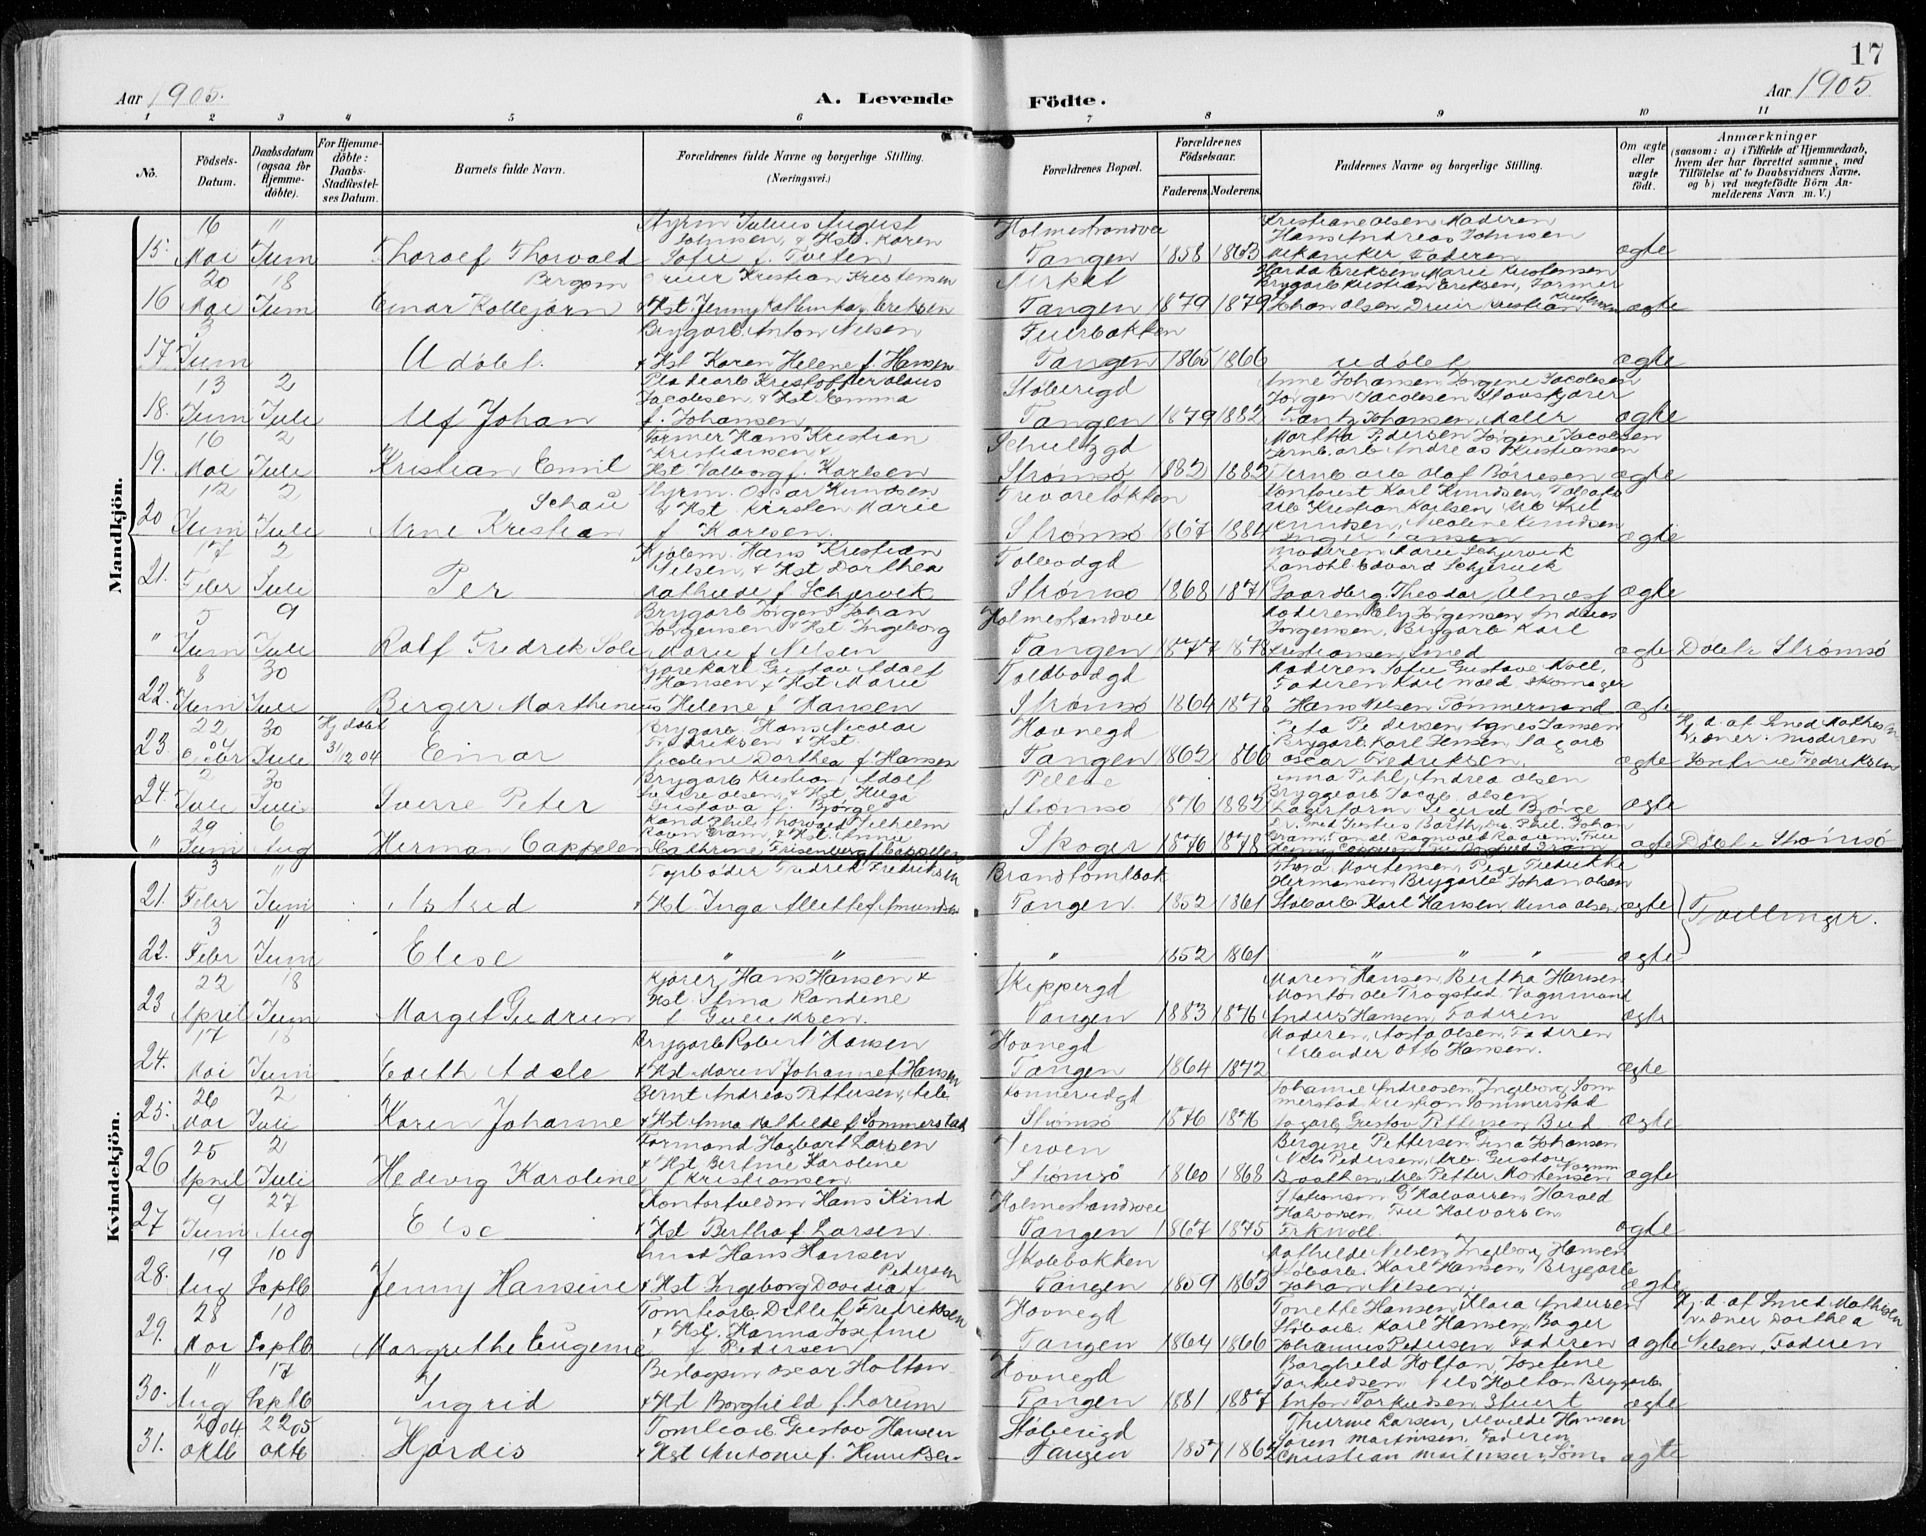 17
Aar 1905.
A. Levende
Födte.
Aar 1905
1 2 3 4 5 6 7 8 9 10 11
No.
Födsels-Datum.
Daabsdatum (ogsaa för Hjemme-döbte).
For Hjemme-döbte: Daabs-Stadfæstel-ses Datum.
Barnets fulde Navn.
Forældrenes fulde Navne og borgerlige Stilling.
(Næringsvei.)
Forældrenes Bopæl.
Forældrenes Födselsaar.
Faderens. Moderens.
Faddernes Navne og borgerlige Stilling.
Om ægte eller uægte födt.
Anmærkninger
(saasom: a) i Tilfælde af Hjemmedaab, hvem der har forrettet samme, med Tilföielse af to Daabsvidners Navne, og b) ved uægtefödte Börn An-melderens Navn m. V.)
Mandkjön.
15. 16 Mai " Juni Thorolf Thorvald Styrm Julius August Johnsen, & Hst. Karen Sofie f. Tveten Holmestrandvei Tangen 1858 1863 Kristiane Olsen, Moderen Hans Andreas Johnsen Mekaniker Faderen ægte
16 20 Mai 18 Juni Einar Kollejorn Bergom Kristian Kristensen & Hst Jenny Eriksen Tangen 1879 1879 Marie Kristensen Brygarb Kristian Eriksen, Former Johan Olsen Kristian Kristensen ægte
17 3 Juni Udöbt. Brygarb. Anton Nilsen & Hst Karen Helene f. Hansen Tangen 1865 1866 udöbt ægte
18. 13 Juni 2 Juli Alf Johan Kristoffer Olaus Jacobsen & Hst. Emma f. Johansen Støberigd Tangen 1879 1882 Anne Johansen Jørgine Jacobsen Jørgen Jacobsen Frantz Johansen, Maler ægte
19. 16 Mai 2 Juli Kristian Emil Former Hans Kristian Kristiansen & Hst Valborg f. Karlsen Schultzgd Strømsø 1882 1882 Martha Pedersen Jørgine Jacobsen Jernb arb Andreas Kristiansen Jernb arb Olaf Børresen ægte
20 12 Juni 2 Juli Arne Kristian Schau Styrm. Oscar Knudsen & Hst Kirsten Marie f Karlsen. Strømsø 1867 1884 Karl Knudsen, Tobaks arb Kristian Karlsen Knudsen, Nicoline Knudsen Inger Hansen ægte
21. 17 Febr 2 Juli Per Kjøbm. Hans Kristian Nilsen, & Hst Dorthea Mathilde f Schjervik Tolbodgd Strømsø 1868 1871 Moderen Marie Schjervik Landhl Edvard Schjervik Gaardbrg. Theodor Alness ægte
" 5 Juni 9 Juli Rolf Fredrik Brygarb Jørgen Johan Jørgensen & Hst Ingeborg Marie f Nilsen Holmestrandvei Tangen 1877 1878 Moderen Jørgensen, Andreas Jørgensen, Brygarb Karl Kristiansen, Smed ægte Døbt i Strømsø
22. 8 Juni 30 Juli Berger Marthinius Kjørekarl Gustav Adolf Hansen & Hst Marie Helene f. Hansen Toldbodgd Strømsø 1864 1878 Moderen Sofie Gustave Faderen Karl Wold, Skomager Hans Nilsen Tømmermand ægte
23. 22 04 Octbr 30 Juli Hj døbt 31/12 04 Einar Brygarb. Hans Nicolai Fredriksen & Hst Nicoline Dorthea f. Hansen Havnegd Tangen 1862 1866 Pedersen, Agnes Jansen Brygarb. Karl Jensen, Oscar Fredriksen. ægte Hj. d. af Smed Mathisen Vidner: Moderen Josefine Fredriksen
24. 2 Juli 30 Juli Sverre Peter Brygarb Kristian Adolf Sverre Olsen, & Hst. Helga Gustava f. Bjørge Strømsø 1876 1882 Anna Pihl, Andrea Olsen Bryggearb Jacob Olsen Sigurd Bjørge ægte
" 29 Juni 6 Aug Herman Cappelen Kand Phil. Thorvald Wilhelm Ravn Gram, & Hst. Anne Cathrine f. Cappelen Skoger 1876 1878 Barth, Dr. Phil. Johan Gram, ægte Døbt i Strømsø
Kvindekjön.
21. 3 Febr " Juni Astrid Fyrbøder Fredrik Fredriksen & Hst. Inga Alette f Amundsen Brandtomtbak Tangen 1852 1861 Thea Mortensen, Pige Fredrikke Hermansen, Brygarb Johan Olsen Støbarb Karl Hansen, Mina Olsen ægte Tvillinger.
22. 3 Febr " Juni Elise " " " 1852 1861 " " " ægte
23 22 April 18 Juni Margit Gudrun Kjører Hans Hansen & Hst. Stina Randine f Gulliksen. Skippergd Tangen 1883 1876 Maren Hansen Bertha Hansen Montør Ole Trøgstad, Vognmand Anders Hansen, Faderen ægte
24. 17 Mai 18 Juni Edith Adele Brygarb Robert Hansen & Hst Maren Johanne f Hansen Havnegd Tangen 1864 1872 Moderen, Aasta Olsen, Faderen Arbeider Otto Hansen. ægte
25. 26 Mai 2 Juli Karen Johanne Bernt Andreas Pettersen, Arb. & Hst Anna Mathilde f Sommerstad Konnerudgd Strømsø 1876 1876 Johanne Andreasen, Ingeborg Sommerstad Kristian Sommerstad Gustav Pettersen Bud ægte
26 25 April 2 Juli Hedvig Karoline Formand Hagbart Larsen & Hst Bertine Karoline f Kristiansen Verven Strømsø 1860 1868 Bergine Pettersen, Lina Johansen Nils Pedersen, Arb. Gustav Baatken Arb Petter Mortensen ægte
27 9 Juni 27 Aug Else Kontorfuldm Hans Kind & Hst Bertha f Larsen Holmestrandvei Tangen 1867 1875 G Halvorsen, Harald Halvorsen, Fru Halvorsen ægte
28. 19 Aug 10 Septb Jenny Hansine Smed Hans Hansen & Hst Ingeborg Davidea f Pedersen Skolebakken Tangen 1859 1863 Mathilde Nilsen, Ingeborg Hansen Støbarb. Karl Hansen, Brygarb Johan Nilsen. ægte
29. 28 Mai 10 Septb Margrethe Eugenie Tomtearb. Ditlef Fredriksen & Hst. Hanna Josefine f Pedersen Havnegd Tangen 1864 1866 Tonette Hansen Klara Andersen Støbarb. Karl Hansen, Bager Johannes Pedersen Faderen ægte Hj. d. af Smed Mathisen Vidner Dorthea Nilsen, Faderen
30. " Aug 17 Septb Ingrid Oscar Holtan & Hst Borghild f. Lorum Havnegd Tangen 1881 1887 Borghild Holtan, Josefine Torkildsen Nils Holtan Brygarb. Anton Torkildsen, Stuert ægte
31. 29 04 Oktb 22 05 Oktb Hjørdis Tomtearb Gustav Hansen & Hst Antonie f. Henriksen Støberigd Tangen 1857 1862 Larsen, Alvilde Hansen Søren Martinsen, Faderen Christian Martinsen, Sjøm. ægte